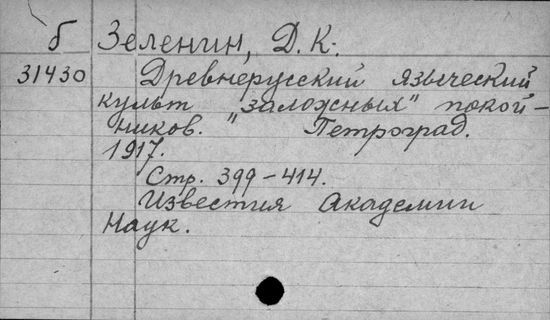 б Зеленин, Д. К.
31430 Древнерусский языческий
культ "заложных" покой-
ников." Петроград.
1917.
Стр. 399-414.
Известия Академии
Наук.